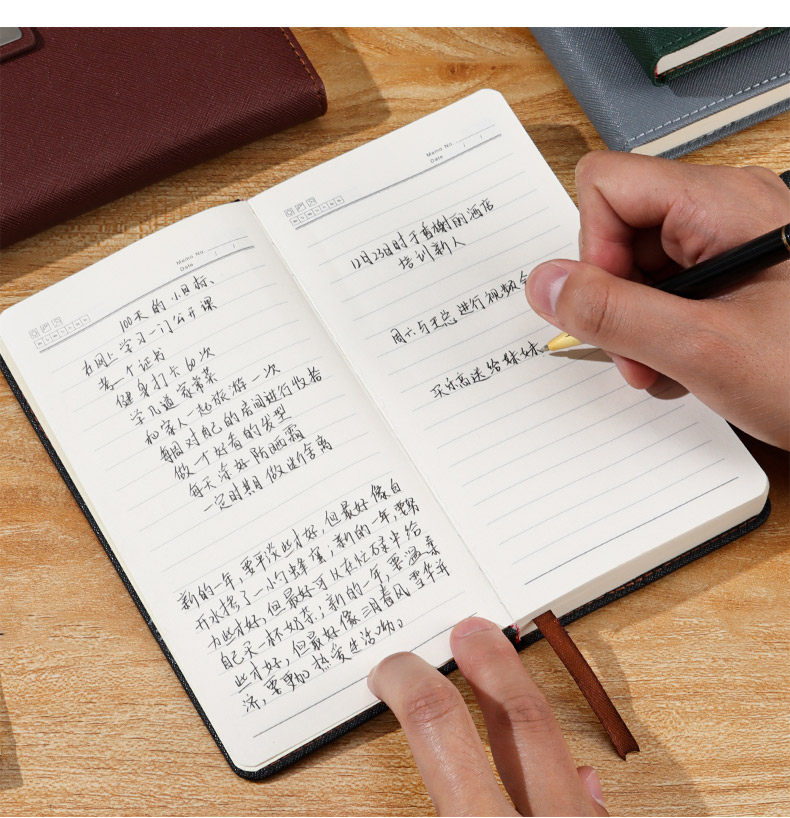 Memo No.
Date / /
100天的小目标、
在网上学习一门公开课
考一个证书
健身打卡60次
学几道家常菜
和家人一起旅游一次
每周对自己的房间进行收拾
做个好看的发型
每天涂好防晒霜
一定时期做断舍离
新的一年,要平淡些才好,但最好像白
开水搀了一小勺蜂蜜;新的一年,要努
力些才好,但最好可以在忙碌中给
自己买一杯奶茶;新的一年,要温柔
些才好,但最好像三月春风
济,要更加热爱生活呦。
Memo No.
Date / /
12月23日时于香榭丽酒店
培训新人
周六与王总进行视频会
买乐高送给妹妹